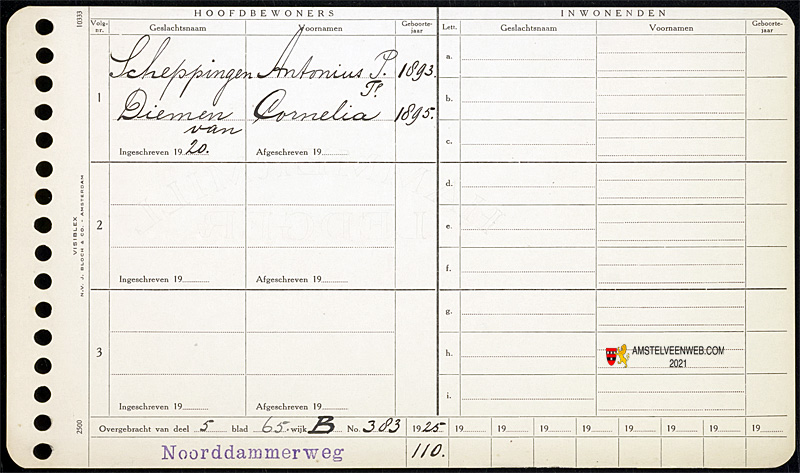 HOOFDBEWONERS
INWONENDEN
10333
Volg-nr. Geslachtsnaam Voornamen Geboorte-jaar
Lett. Geslachtsnaam Voornamen Geboorte-jaar
1
Scheppingen Antonius P. 1893.
Diemen Cornelia 1895.
van
Ingeschreven 19 20. Afgeschreven 19
2
Ingeschreven 19 Afgeschreven 19
3
Ingeschreven 19 Afgeschreven 19
a.
b.
c.
d.
e.
f.
g.
h.
i.
AMSTELVEENWEB.COM
2021
VISIBLEX
N.V. J. BLOCH & CO. - AMSTERDAM
2500
Overgebracht van deel 5 blad 65 wijk B No. 383 1925 19 19 19 19 19 19 19 19
Noorddammerweg 110.